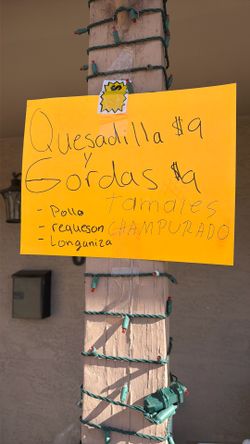 Quesadilla $9
y
Gordas $9
Tamales
- Pollo
- requeson CHAMPURADO
- Longaniza